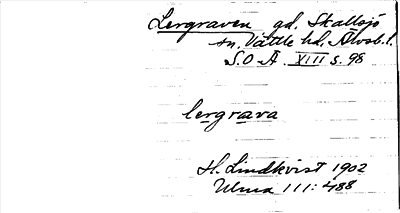 Lergraven gd. Skallsjö
sn. Vättle hd. Älvsb. l.
S.O.Ä. XIII s. 98
lergrava
H. Lindkvist 1902
Ulma 111:488